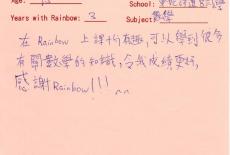 Age: 13
School:
Years with Rainbow: 3
Subject: 數學
在 Rainbow 上課十分有趣,可以學到很多
有關數學的知識,令我成績更好,
感謝Rainbow!!!
^^